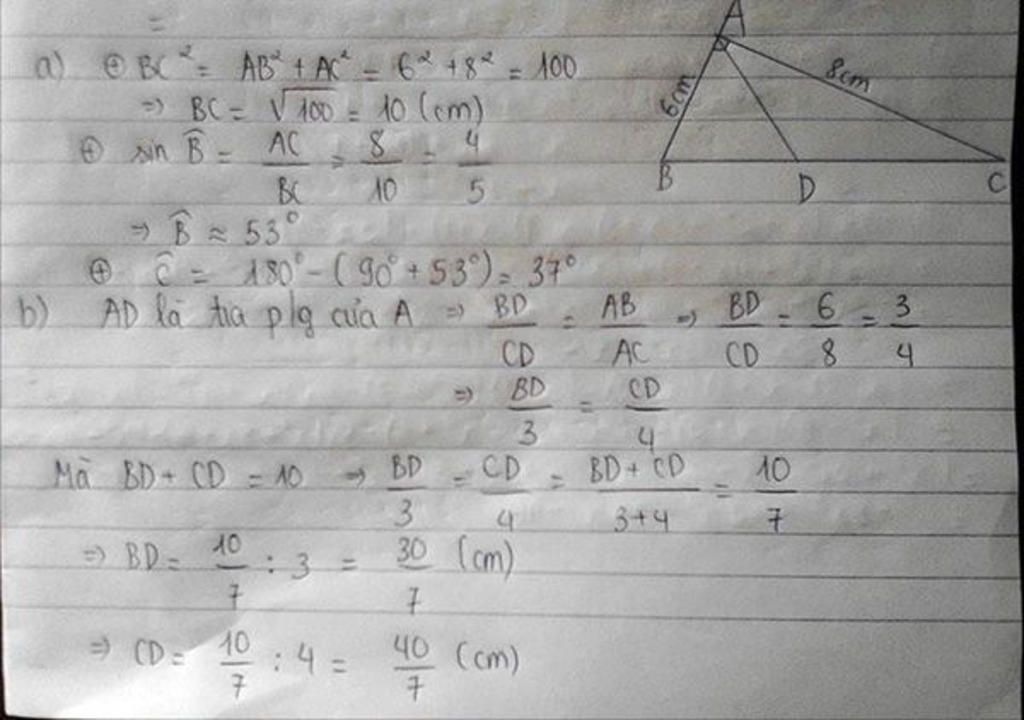 a) ⊕ BC² = AB² + AC² = 6² + 8² = 100
⇒ BC = √100 = 10 (cm)
⊕ sin B̂ = AC/BC = 8/10 = 4/5
⇒ B̂ ≈ 53°
⊕ Ĉ = 180° - (90° + 53°) = 37°
b) AD là tia p/g của A ⇒ BD/CD = AB/AC ⇒ BD/CD = 6/8 = 3/4
⇒ BD/3 = CD/4
Mà BD + CD = 10 ⇒ BD/3 = CD/4 = BD + CD/3+4 = 10/7
⇒ BD = 10/7 : 3 = 30/7 (cm)
⇒ CD = 10/7 : 4 = 40/7 (cm)
A
6cm
8cm
B
D
C